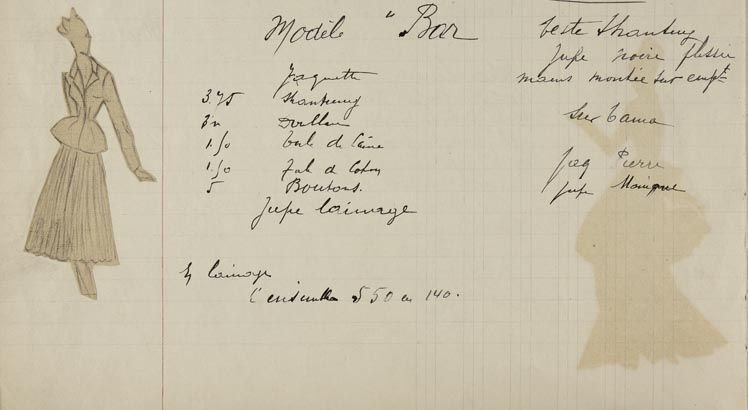 Modèle "Bar
Jaquette
3.75 Shantung
1.50 toile de laine
1.50 de Coton
5 Boutons.
Jupe lainage
lainage
l'ensemble 550 en 140.
Veste Shantung
Jupe noire plissée
mains montée sur empt
sur Tania
Jaq Pierre
Jupe Monique